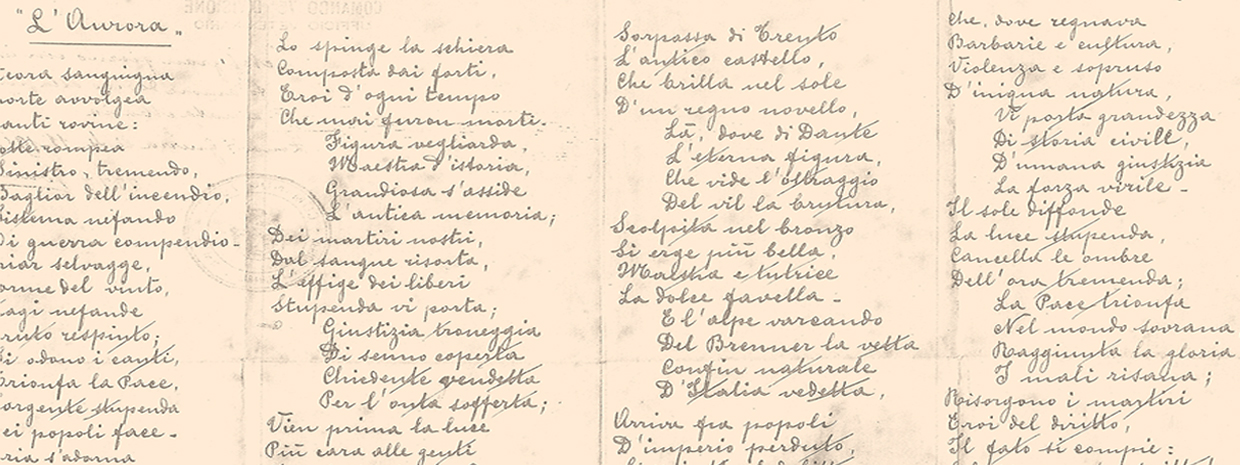 "L'Aurora"
sanguigna
avvolgea
rovine:
rompea
Sinistro, tremendo,
Baglior dell'incendio,
Sistema nefando
Di guerra compendio-
selvagge,
del vinto,
nefande
respinto;
Si odono i canti,
Trionfa la Pace,
Sorgente stupenda
Dei popoli face-
s'adorna
Lo spinge la schiera
Composta dai forti,
Eroi d'ogni tempo
Che mai furon morti-
Figura vegliarda,
Maestra d'istoria,
Grandiosa s'asside
L'antica memoria;
Dei martiri nostri,
Dal sangue risorta,
L'effige dei liberi
Stupenda vi porta;
Giustizia troneggia
Di senno coperta
Chiedente vendetta
Per l'onta sofferta;
Vien prima la luce
Più cara alle genti
Sorpassa di Trento
L'antico castello,
Che brilla nel sole
D'un regno novello,
Là, dove di Dante
L'eterna figura,
Che vide l'oltraggio
Del vil la brutura,
Scolpita nel bronzo
Si erge più bella,
Maestra e tutrice
La dolce favella-
E l'alpe varcando
Del Brenner la vetta
Confin naturale
D'Italia vedetta,
Arriva fra popoli
D'imperio perduto,
Che, dove regnava
Barbarie e cultura,
Violenza e sopruso
D'iniqua natura,
Vi porta grandezza
Di storia civill
D'umana giustizia
La forza virile-
Il sole diffonde
La luce stupenda,
Cancella le ombre
Dell'ora tremenda;
La Pace trionfa
Nel mondo sovrana
Raggiunta la gloria
I mali risana;
Risorgono i martiri
Eroi del diritto,
Il fato si compie: